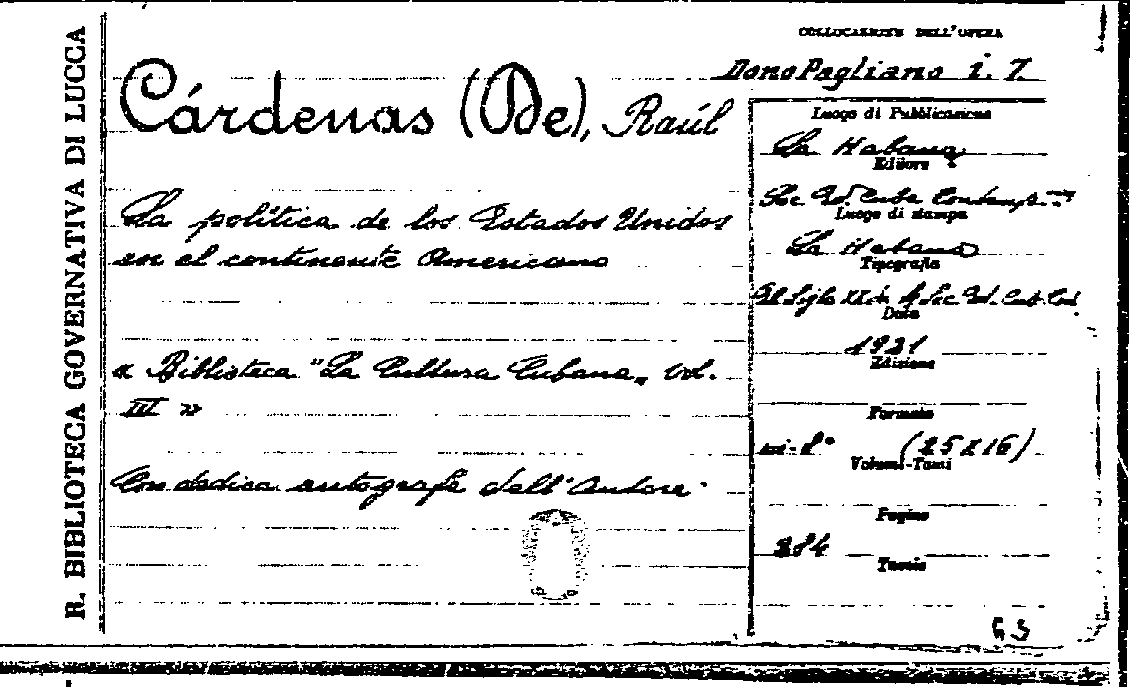 R. BIBLIOTECA GOVERNATIVA DI LUCCA
COLLOCAZIONE DELL'OPERA
Dono Pagliano i. 7
Cárdenas (De), Raúl
La política de los Estados Unidos
en el continente Americano
« Biblioteca "La Cultura Cubana„ Vol.
III »
Con dedica autografa dell'Autore
Luogo di Pubblicazione
La Habana
Editore
Soc. Ed. Cuba Contemp.
Luogo di stampa
La Habana
Tipografia
El Siglo XX de la Soc. Ed. Cub. Con.
Data
1921
Edizione
Formato
in-8° (25x16)
Volumi-Tomi
Pagine
284
Tavole
G S